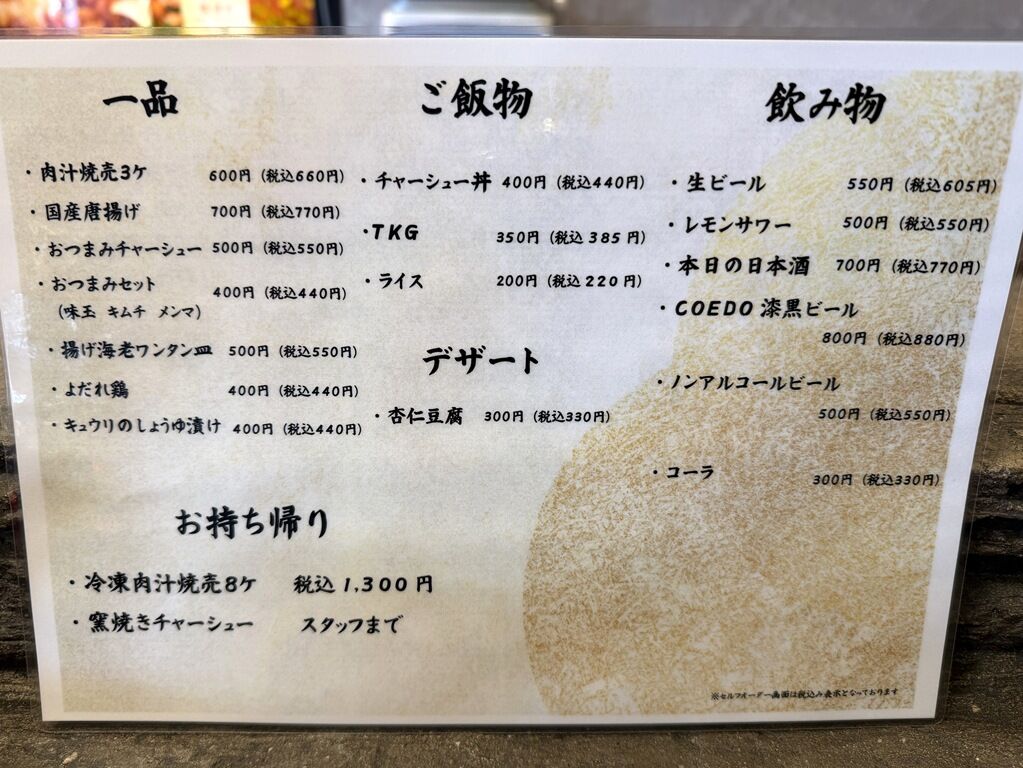 一品
・肉汁焼売3ケ 600円（税込660円）
・国産唐揚げ 700円（税込770円）
・おつまみチャーシュー 500円（税込550円）
・おつまみセット
（味玉 キムチ メンマ） 400円（税込440円）
・揚げ海老ワンタン皿 500円（税込550円）
・よだれ鶏 400円（税込440円）
・キュウリのしょうゆ漬け 400円（税込440円）
お持ち帰り
・冷凍肉汁焼売8ケ 税込1,300円
・窯焼きチャーシュー スタッフまで
ご飯物
・チャーシュー丼 400円（税込440円）
・TKG 350円（税込385円）
・ライス 200円（税込220円）
デザート
・杏仁豆腐 300円（税込330円）
飲み物
・生ビール 550円（税込605円）
・レモンサワー 500円（税込550円）
・本日の日本酒 700円（税込770円）
・COEDO 漆黒ビール
800円（税込880円）
・ノンアルコールビール
500円（税込550円）
・コーラ 300円（税込330円）
※セルフオーダー画面は税込み表示となっております